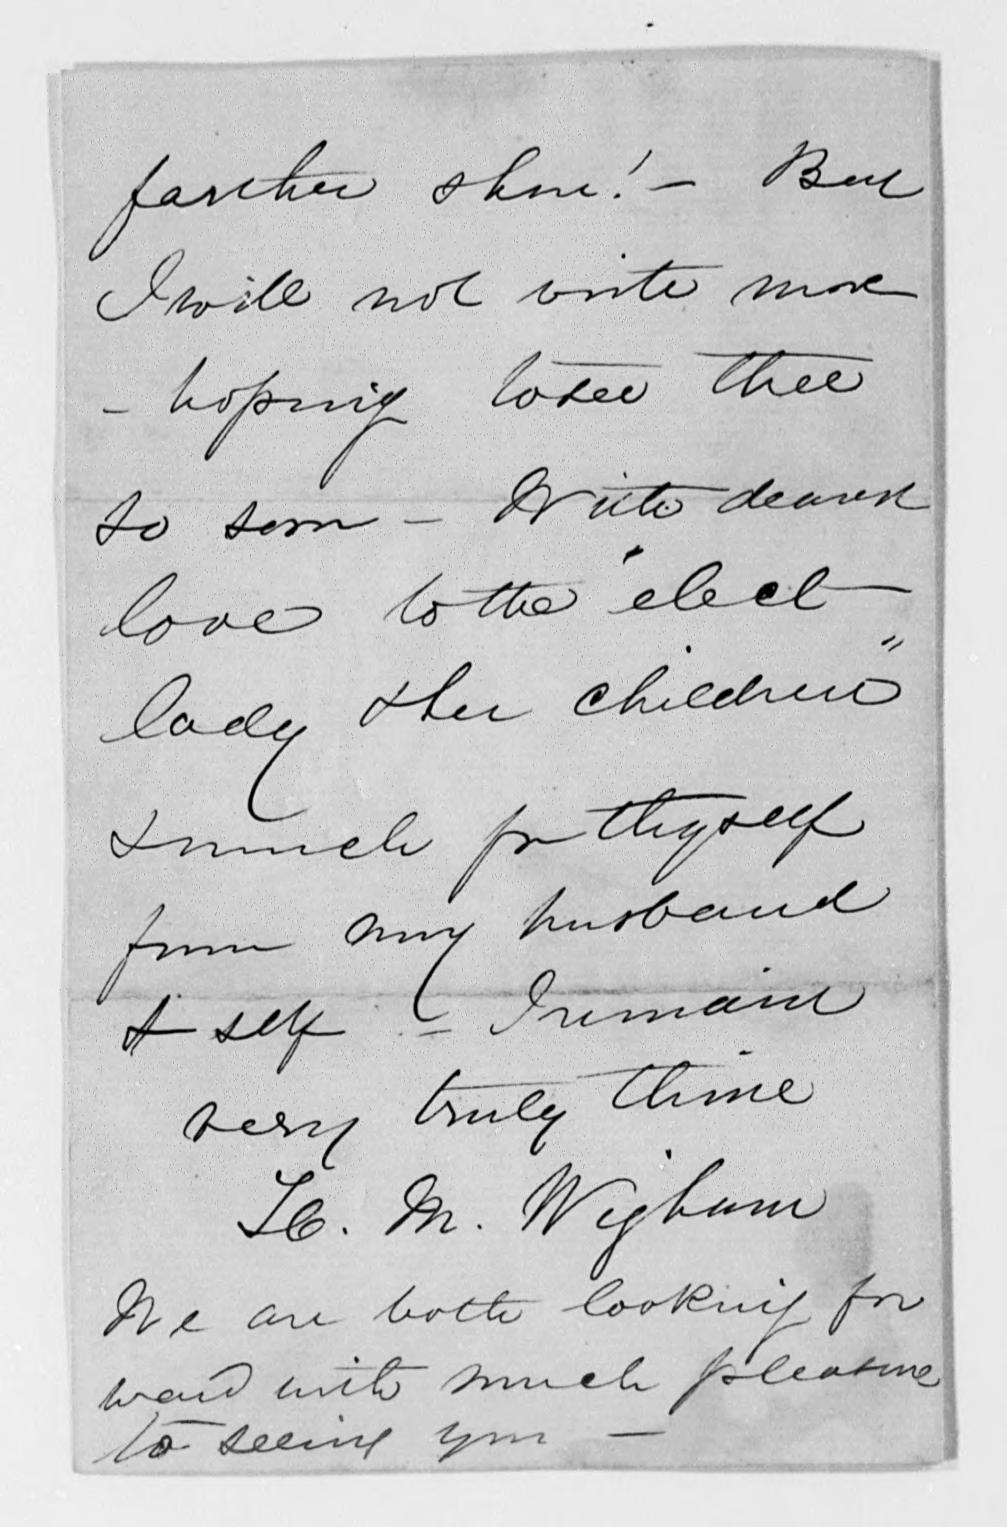 farther shore! - But
I will not write more
- hoping to see thee
so soon - With dearest
love to the "elect
lady & her children"
& much for thyself
from my husband
& self - I remain
very truly thine
H. M. Wigham
We are both looking for
ward with much pleasure
to seeing you -